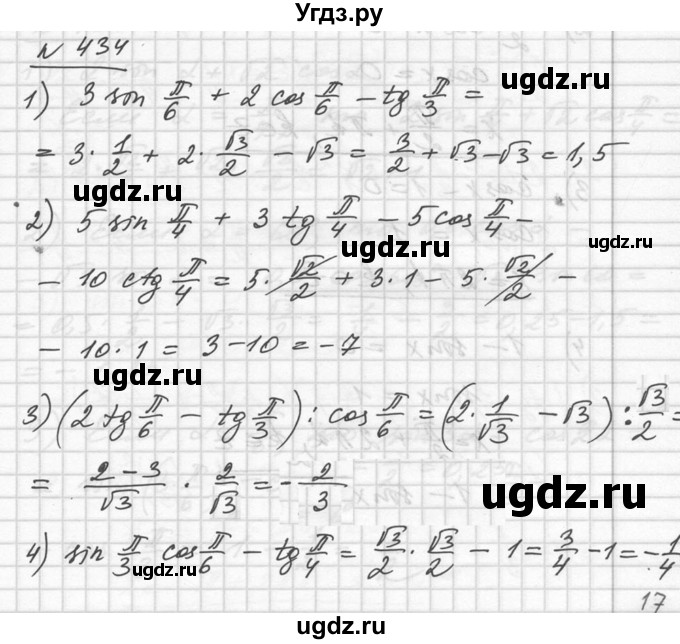 Угдз.ру
N 434
1) 3 sin π/6 + 2 cos π/6 − tg π/3 =
ugdz.ru
= 3 · 1/2 + 2 · √3/2 − √3 = 3/2 + √3 − √3 = 1,5
ugdz.ru
ugdz.ru
2) 5 sin π/4 + 3 tg π/4 − 5 cos π/4 −
ugdz.ru
ugdz.ru
− 10 ctg π/4 = 5 · √2/2 + 3 · 1 − 5 · √2/2 −
− 10 · 1 = 3 − 10 = −7
ugdz.ru
ugdz.ru
3) (2 tg π/6 − tg π/3) : cos π/6 = (2 · 1/√3 − √3) : √3/2 =
= (2 − 3)/√3 · 2/√3 = − 2/3
ugdz.ru
ugdz.ru
4) sin π/3 cos π/6 − tg π/4 = √3/2 · √3/2 − 1 = 3/4 − 1 = − 1/4
ugdz.ru
17